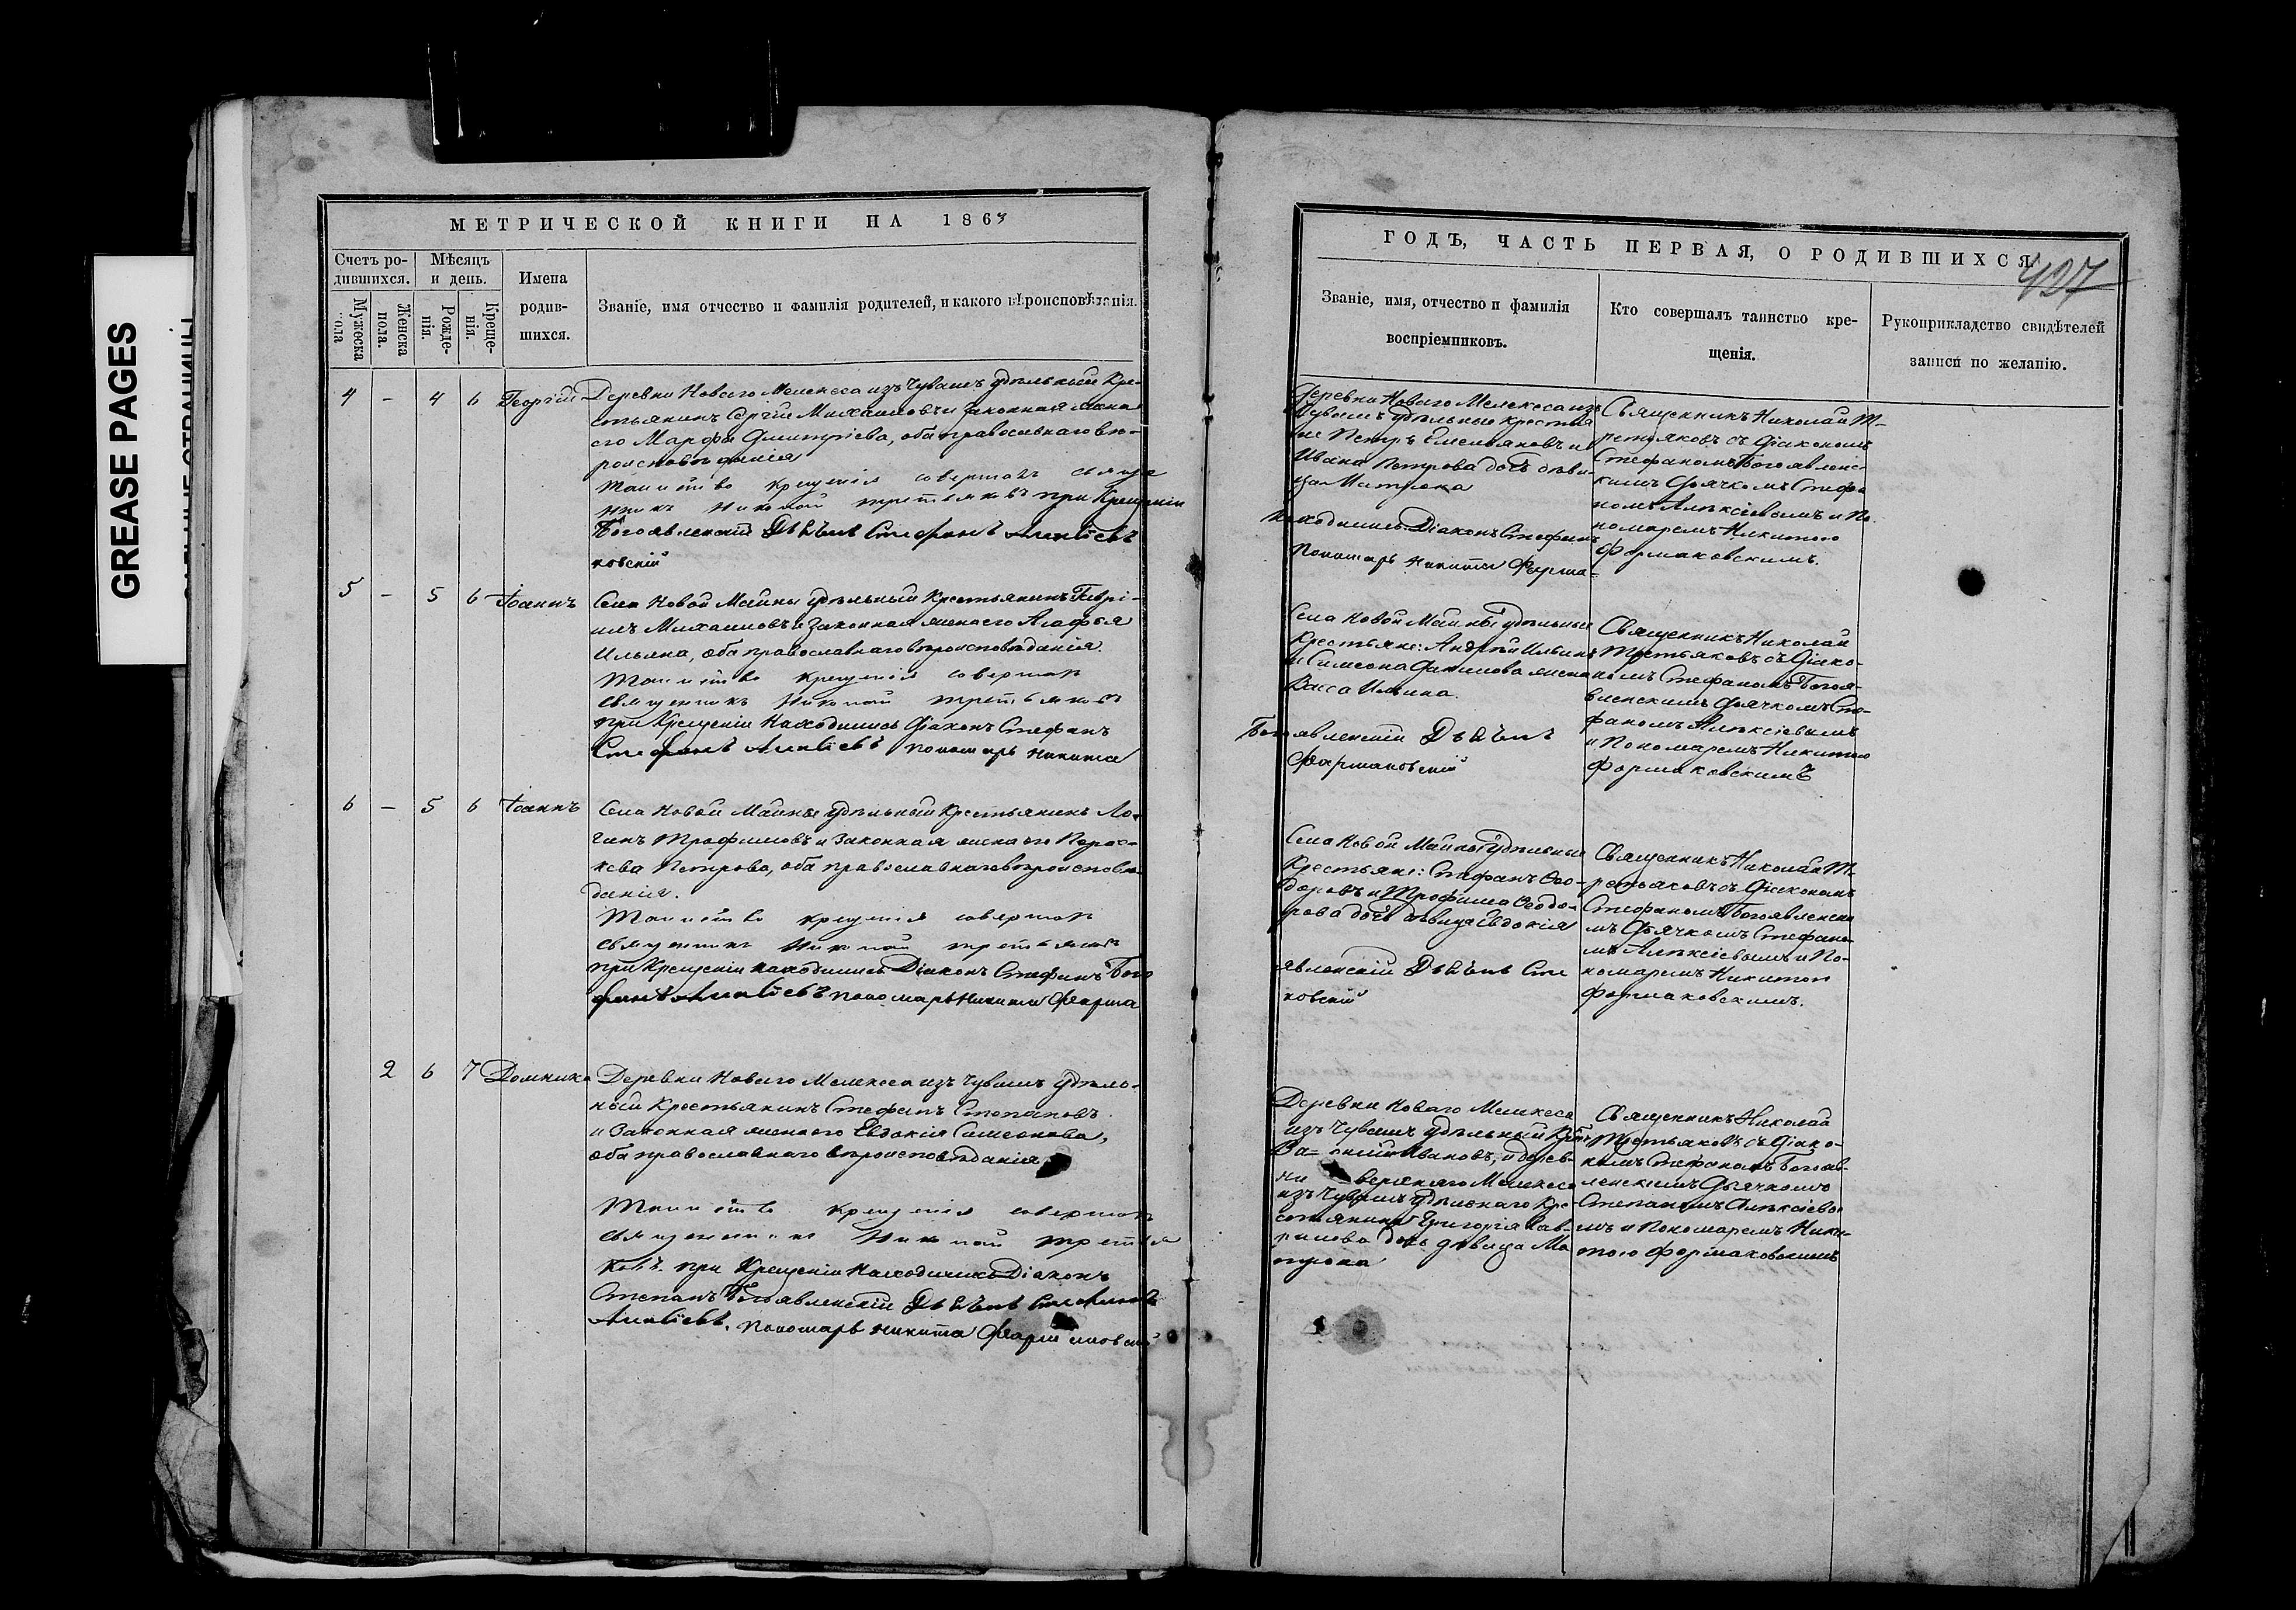 GREASE PAGES
МЕТРИЧЕСКОЙ КНИГИ НА 1863
Счетъ ро-
дившихся.
Мѣсяцъ
и день.
Имена
родив-
шихся.
Званіе, имя отчество и фамилія родителей, и какого вѣроисповѣданія.
Мужеска
пола
Женска
пола.
Рожде-
нія.
Креще-
нія.
4 - 4 6 Георгій
Деревни Новаго Мелекеса изъ Чувашъ удѣльный Кре-
стьянинъ Сергій Михаиловъ и законная жена
его Марфа Димитріева, оба православнаго вѣ-
роисповѣданія
Таинство крещенія совершалъ свяще
нникъ Николай Третьяковъ при Крещеніи
Богоявленскій Дьячокъ Стефанъ Алексіевъ
ковскій
5 - 5 6 Іоаннъ
Села Новой Майны удѣльный Крестьянинъ Гаврі-
илъ Михаиловъ и Законная жена его Агафья
Ильина, оба православнаго вѣроисповѣданія.
Таинство крещенія совершалъ
священникъ Николай Третьяковъ
при Крещеніи Находились Діаконъ Стефанъ
Стефанъ Алексіевъ Пономарь Никита
6 - 5 6 Іоаннъ
Села Новой Майны удѣльный Крестьянинъ Ло-
гинъ Трофимовъ и Законная жена его Парас-
кева Петрова, оба православнаго вѣроисповѣ-
данія.
Таинство крещенія совершалъ
священникъ Николай Третьяковъ
при Крещеніи находились Діаконъ Стефанъ Бого
фанъ Алексіевъ Пономарь Никита Фарма
2 6 7 Домника
Деревни Новаго Мелекеса изъ Чувашъ удѣль-
ный Крестьянинъ Стефанъ Степановъ
и Законная жена его Евдокія Симеонова,
оба православнаго вѣроисповѣданія
Таинство крещенія совершалъ
священникъ Николай Третья
ковъ. при Крещеніи Находились Діаконъ
Степанъ Богоявленскій Дьячокъ Стефанъ
Алексіевъ. Пономарь Никита Фармаковскій
ГОДЪ, ЧАСТЬ ПЕРВАЯ, О РОДИВШИХСЯ.
427
Званіе, имя, отчество и фамилія
воспріемниковъ.
Кто совершалъ таинство кре-
щенія.
Рукоприкладство свидѣтелей
записи по желанію.
Деревни Новаго Мелекеса изъ
Чувашъ удѣльные крестья
не Петръ Емельяновъ и
Ивана Петрова дочь дѣви-
ца Матрона
находились Діаконъ Стефанъ
Пономарь Никита Фарма-
Священникъ Николай Т-
ретьяковъ съ Діакономъ
Стефаномъ Богоявленс-
кимъ Дьячкомъ Стефа
номъ Алексіевымъ и По-
номаремъ Никитою
Фармаковскимъ.
Села Новой Майны удѣльные
Крестьяне: Андрей Ильинъ
и Симеона Данилова жена
Васса Ильина.
Богоявленскій Дьячокъ
Фармаковскій
Священникъ Николай
Третьяковъ съ Діако-
номъ Стефаномъ Богоя-
вленскимъ Дьячкомъ Сте-
фаномъ Алексіевымъ
и Пономаремъ Никитою
Фармаковскимъ
Села Новой Майны удѣльные
Крестьяне: Стефанъ Ѳео-
доровъ и Трофима Ѳеодо-
рова дочь дѣвица Евдокія
явленскій Дьячокъ Сте
ковскій
Священникъ Николай Т-
ретьяковъ съ Діакономъ
Стефаномъ Богоявленски
мъ Дьячкомъ Стефано-
мъ Алексіевымъ и По-
номаремъ Никитою
Фармаковскимъ.
Деревни Новаго Мелекеса
изъ Чувашъ удѣльный Кре
Ва= силій Ивановъ, и дерев-
ни верхняго Мелекеса
изъ Чувашъ удѣльнаго Кре-
стьянина Григорія Гав-
рилова дочь дѣвица Ма
трона
Священникъ Николай
Третьяковъ съ Діако-
номъ Стефаномъ Богояв-
ленскимъ Дьячкомъ
Степаномъ Алексіевы
мъ и Пономаремъ Ники-
тою Фармаковскимъ